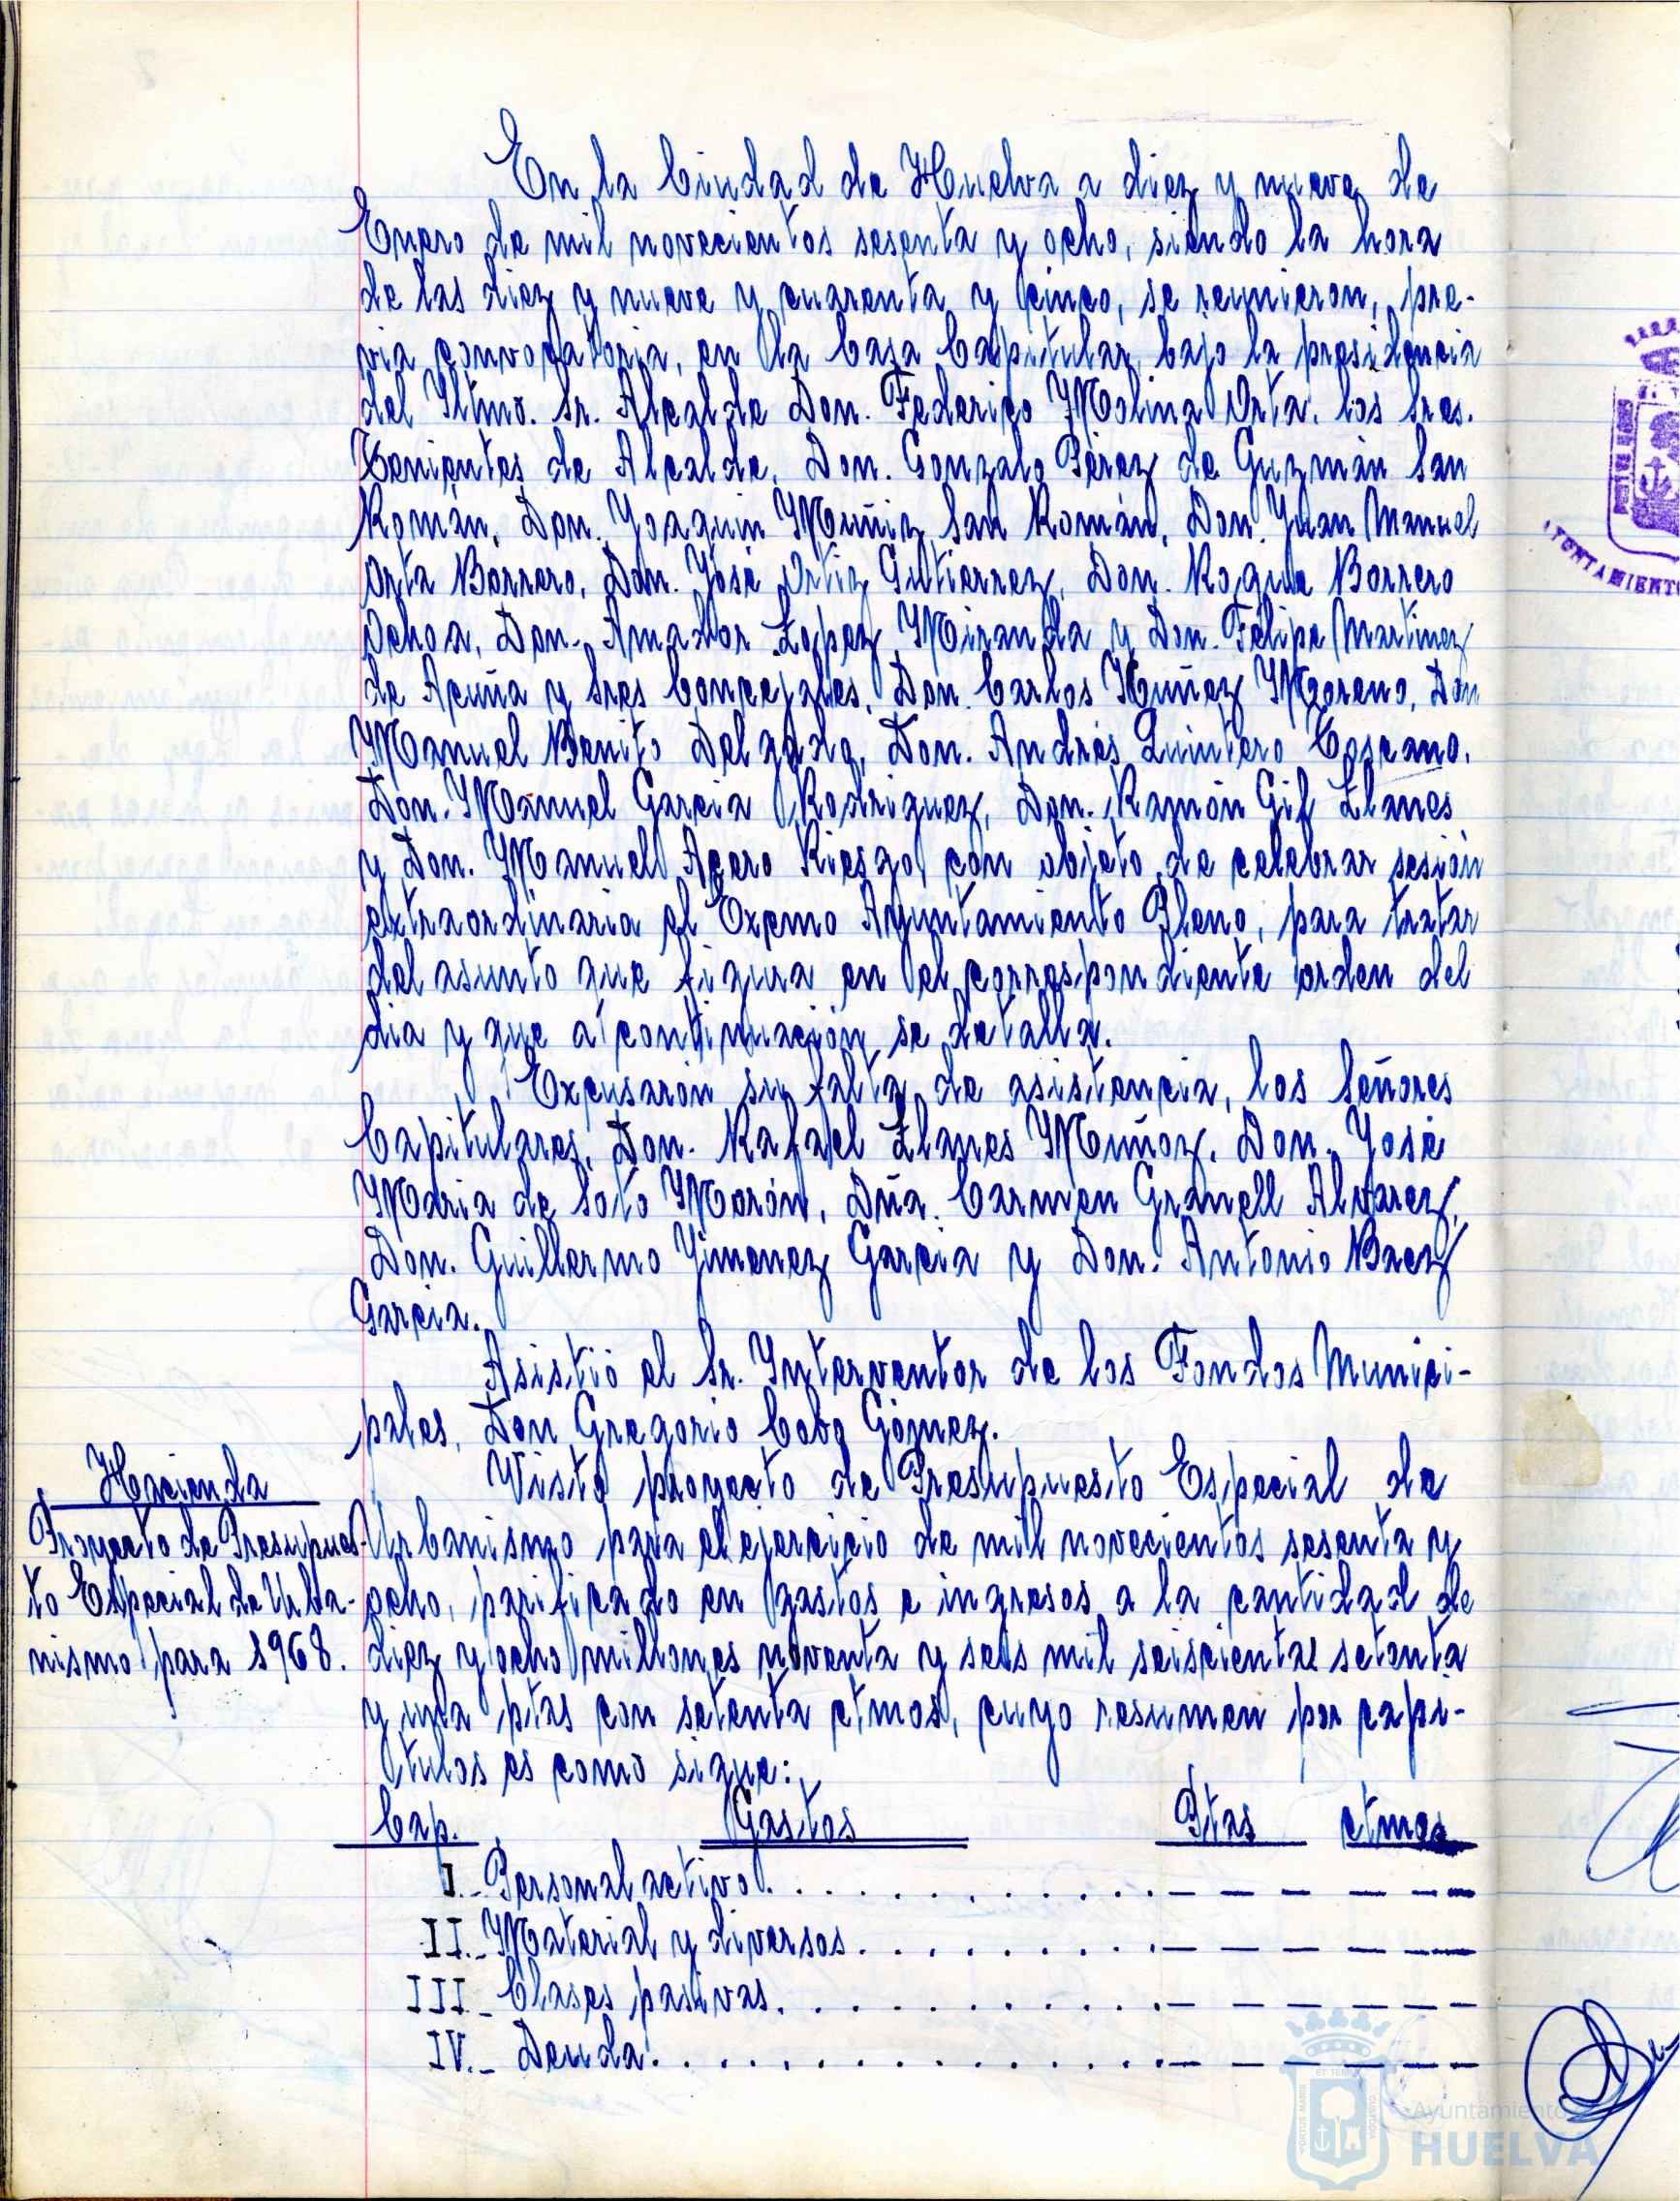 En la Ciudad de Huelva a diez y nueve de
Enero de mil novecientos sesenta y ocho, siendo la hora
de las diez y nueve y cuarenta y cinco, se reunieron, pre-
via convocatoria, en la Casa Capitular, bajo la presidencia
del Iltmo. Sr. Alcalde Don. Federico Molina Orta, los Sres.
Tenientes de Alcalde, Don. Gonzalo Pérez de Guzmán San
Román, Don. Joaquin Muñiz San Román, Don. Juan Manuel
Orta Borrero, Don. José Ortiz Gutierrez, Don. Roque Borrero
Ochoa, Don. Amador Lopez Miranda y Don. Felipe Martinez
de Acuña y Sres Concejales, Don. Carlos Nuñez Moreno, Don
Manuel Benito Delgado, Don. Andrés Quintero Toscano,
Don. Manuel Garcia Rodriguez, Don. Ramón Gil Llanes
y Don. Manuel Acero Riesgo, con objeto de celebrar sesión
extraordinaria el Excmo Ayuntamiento Pleno, para tratar
del asunto que figura en el correspondiente orden del
dia y que a continuación se detalla.
Excusaron su falta de asistencia, los Señores
Capitulares, Don. Rafael Llanes Muñoz, Don. José
Maria de Soto Morón, Dña. Carmen Granell Alvarez,
Don. Guillermo Jimenez Garcia y Don. Antonio Baez
Garcia.
Asistió el Sr. Interventor de los Fondos Munici-
pales, Don Gregorio Cobo Gómez.
Hacienda
Proyecto de Presupues-
to Especial de Urba-
nismo para 1968.
Visto proyecto de Presupuesto Especial de
Urbanismo para el ejercicio de mil novecientos sesenta y
ocho, parificado en gastos e ingresos a la cantidad de
diez y ocho millones noventa y seis mil seiscientas setenta
y una ptas con setenta ctmos, cuyo resumen por capi-
tulos es como sigue:
Cap. Gastos Ptas ctmos
I.- Personal activo. . . . . . . . . . . . . - - - - - -
II.- Material y diversos. . . . . . . . . . - - - - - -
III.- Clases pasivas. . . . . . . . . . . . . - - - - - -
IV.- Deuda. . . . . . . . . . . . . . . . . - - - - - -
AYUNTAMIENTO
PORTUS MARIS ET TERRE CUSTODIA
Ayuntamiento
HUELVA